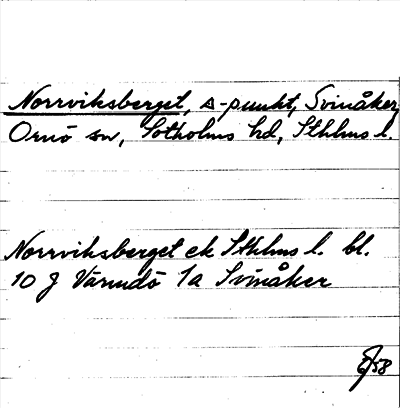 Norrviksberget, s-punkt, Svinåker,
Ornö sn, Sotholms hd, Sthlms l.
Norrviksberget ek Sthlms l. bl.
10 J Värmdö 1a Svinåker
58